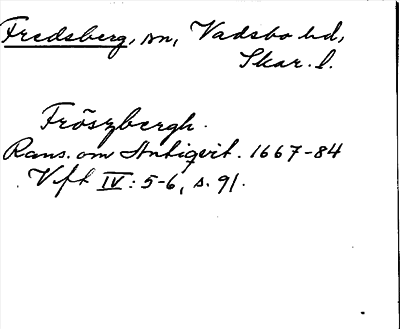 Fredsberg, sn, Vadsbo hd,
Skar. l.
Fröszbergh.
Rans. om Antiqvit. 1667-84
Vft IV: 5-6, s. 91.